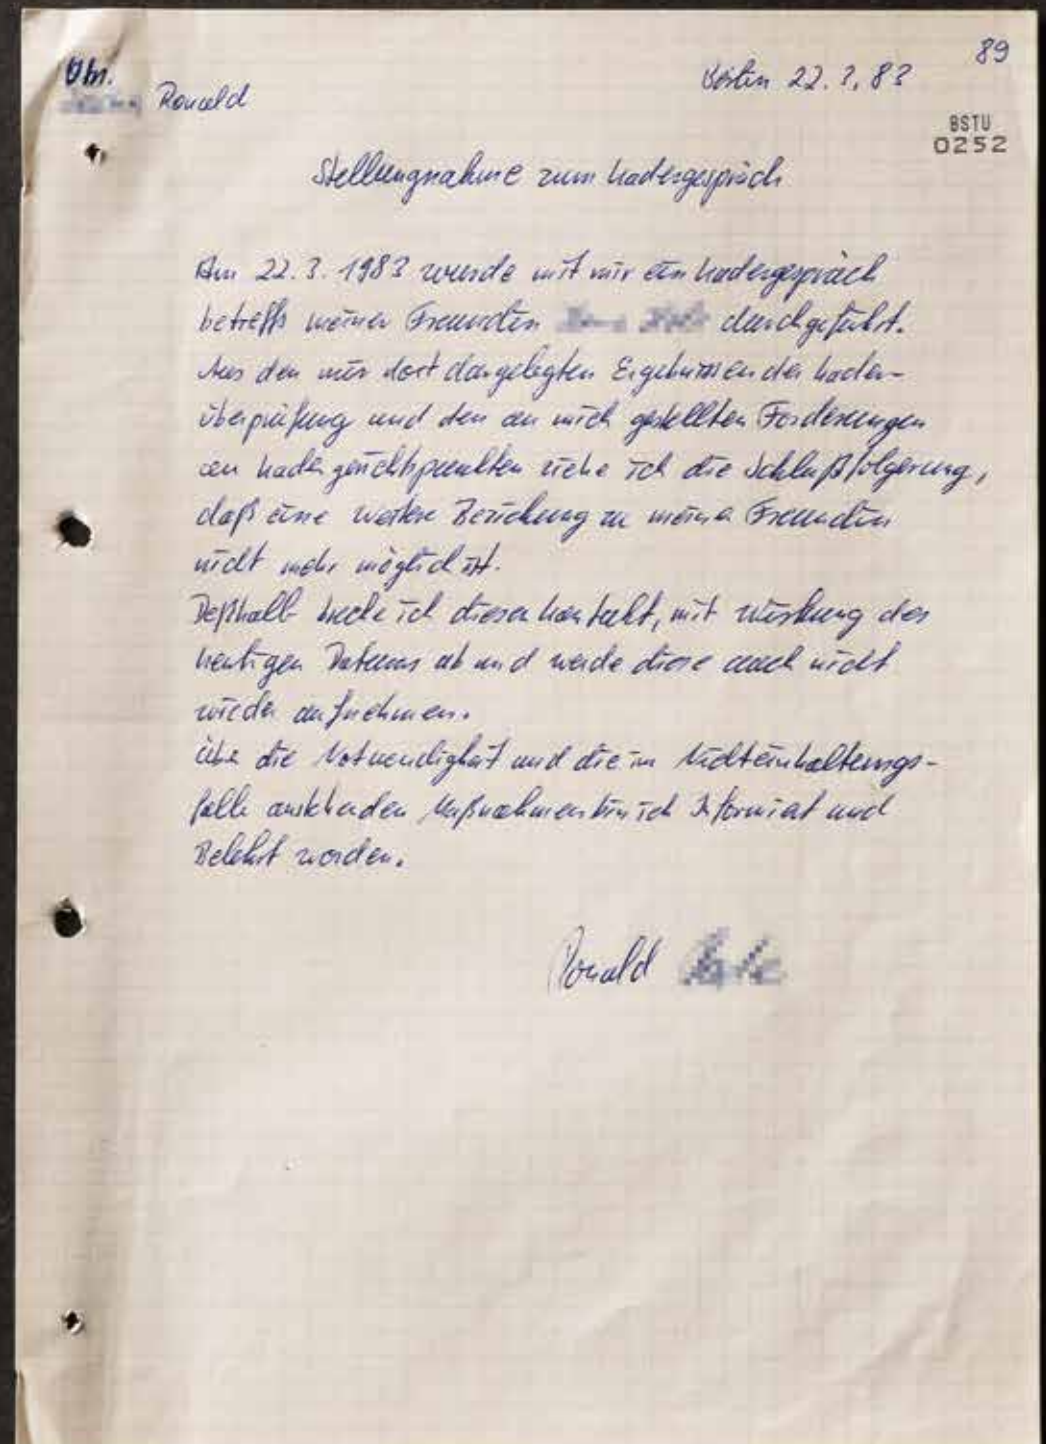 89
Ofm.
Berlin 22.3.83
Ronald
BSTU
0252
Stellungnahme zum Kadergespräch
Am 22.3.1983 wurde mit mir ein Kadergespräch
betreffs meiner Freundin durchgeführt.
Aus den mir dort dargelegten Ergebnissen der Kader-
überprüfung und den an mich gestellten Forderungen
an Kadergesichtspunkten ziehe ich die Schlußfolgerung,
daß eine weitere Beziehung zu meiner Freundin
nicht mehr möglich ist.
Deßhalb breche ich diesen Kontakt, mit Wirkung des
heutigen Datums ab und werde diese auch nicht
wieder aufnehmen.
Über die Notwendigkeit und die im Nichteinhaltungs-
falle anstehenden Maßnahmen bin ich Informiert und
Belehrt worden.
Ronald